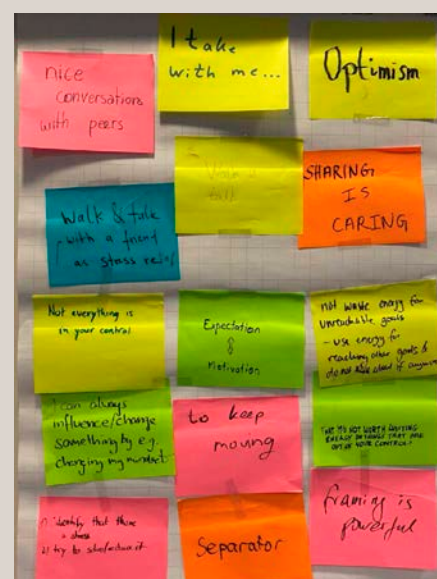 I take
with me...
nice
conversations
with peers
Optimism
Walk &
talk
SHARING
IS
CARING
Walk & talk
with a friend
as stress relief
Not everything is
in your control
Expectation
Motivation
not waste energy for
unreachable goals
- use energy for
reaching other goals &
do not
I can always
influence/change
something by e.g.
changing my mindset
to keep
moving
THAT IT'S NOT WORTH WASTING
ENERGY ON THINGS THAT ARE
OUTSIDE YOUR CONTROL!
1) identify that there
stress
2) try to
Separator
framing is
powerful